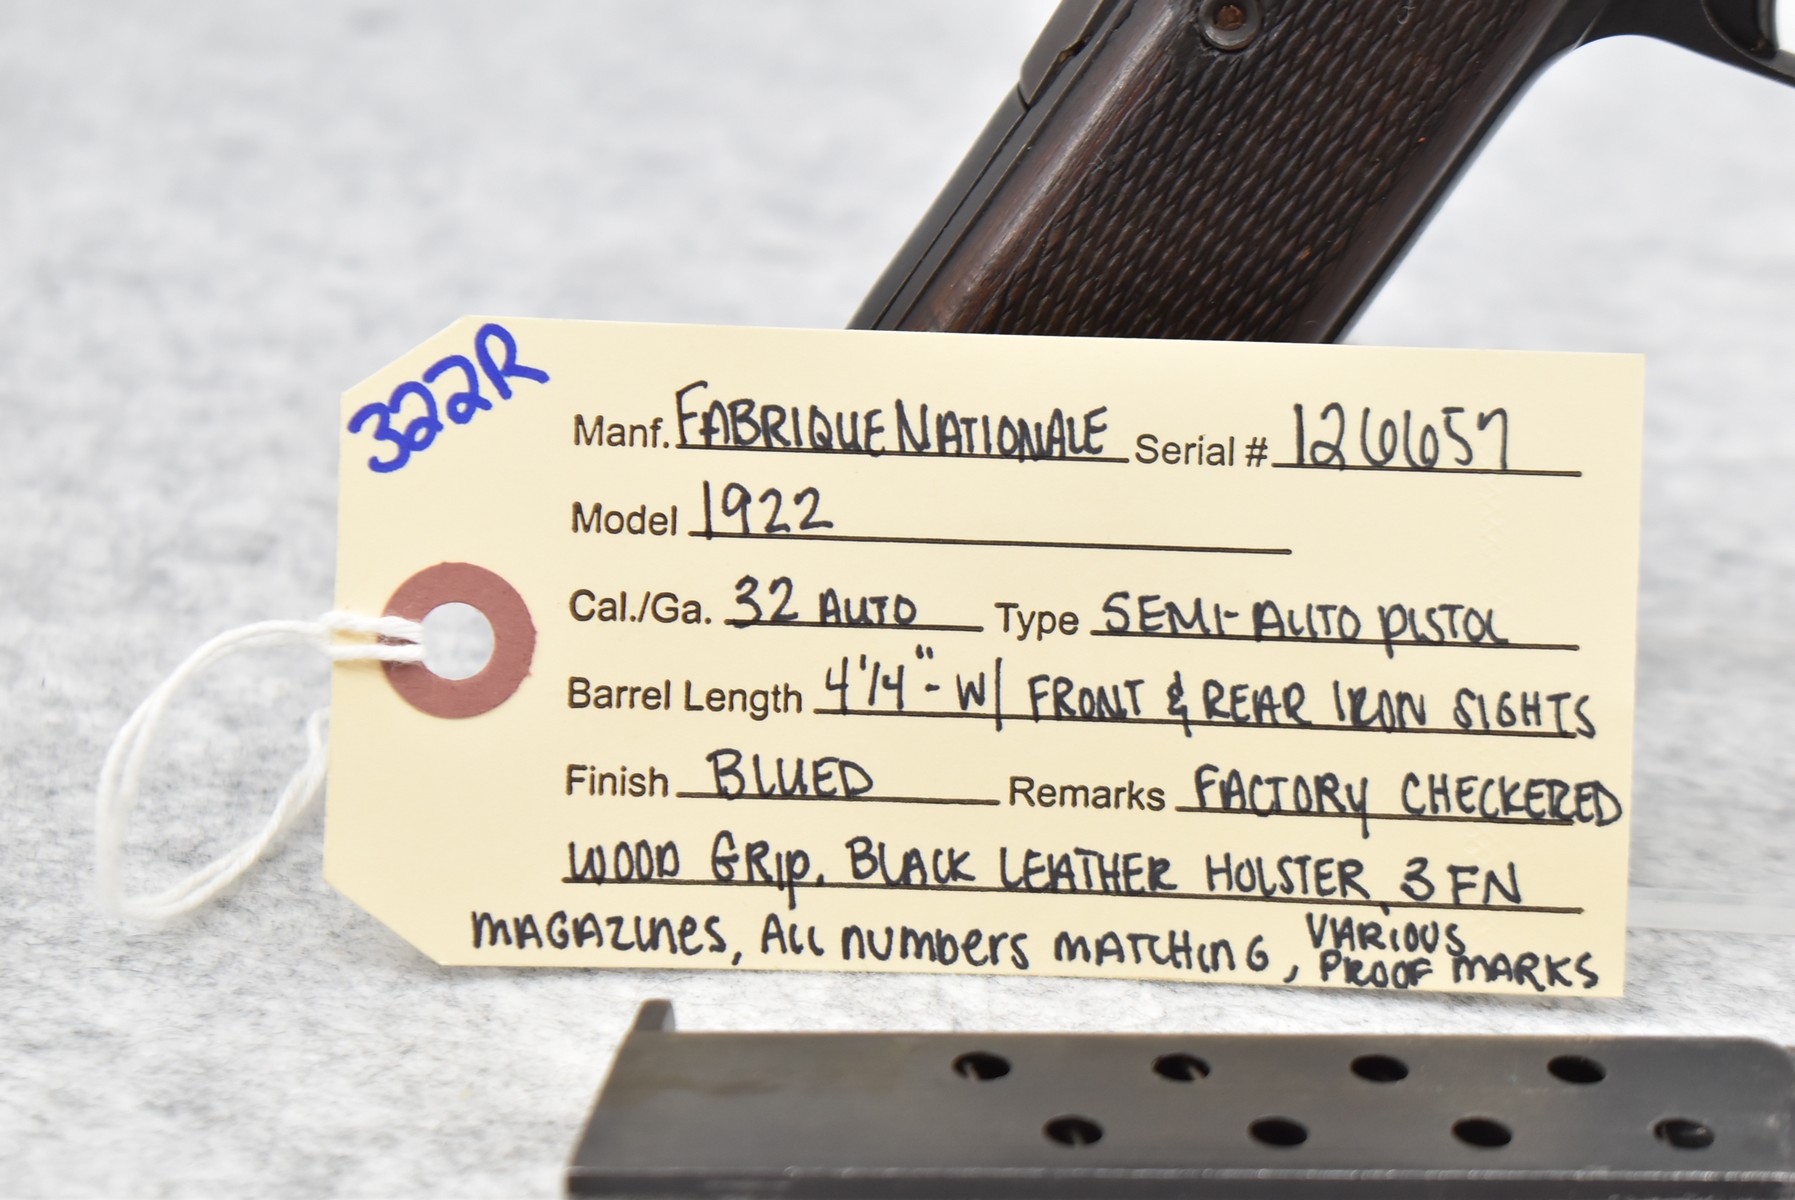 322R
Manf. FABRIQUE NATIONALE Serial # 126657
Model 1922
Cal./Ga. 32 AUTO Type SEMI-AUTO PISTOL
Barrel Length 4 1/4" - W/ FRONT & REAR IRON SIGHTS
Finish BLUED Remarks FACTORY CHECKERED
WOOD GRIP. BLACK LEATHER HOLSTER, 3 FN
MAGAZINES, ALL NUMBERS MATCHING, VARIOUS
PROOF MARKS